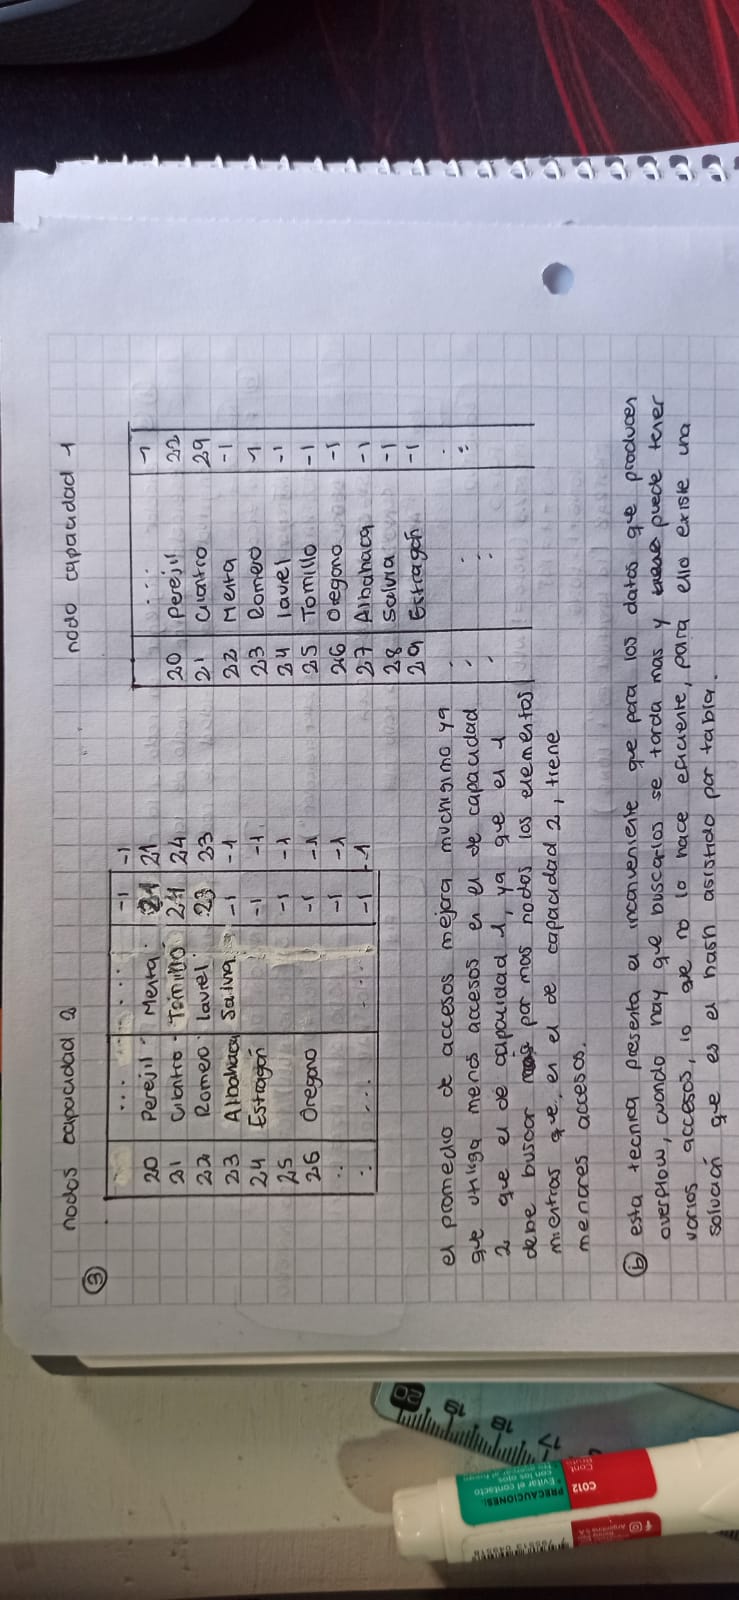 ③ nodos capacidad 2
... ... -1 -1
20 Perejil · Menta · 21 21
21 Cilantro · Tomillo 24 24
22 Romero · laurel 23 23
23 Albahaca Salvia -1 -1
24 Estragón -1 -1
25 -1 -1
26 Oregano -1 -1
: -1 -1
: ... ... -1 -1
nodo capacidad 1
... -1
20 Perejil 22
21 Cilantro 29
22 Menta -1
23 Romero -1
24 laurel -1
25 Tomillo -1
26 Oregano -1
27 Albahaca -1
28 Salvia -1
29 Estragón -1
: : :
: : :
el promedio de accesos mejora muchisimo ya
que utiliza menos accesos en el de capacidad
2 que el de capacidad 1, ya que el 1
debe buscar por mas nodos los elementos
mientras que, en el de capacidad 2, tiene
menores accesos.
ⓑ esta tecnica presenta el inconveniente que para los datos que producen
overflow, cuando hay que buscarlos se tarda mas y tiene puede tener
varios accesos, lo que no lo hace eficiente, para ello existe una
solución que es el hash asistido por tabla.
20
19
18
17
PRECAUCIONES:
Evitar el contacto
con los ojos
C012